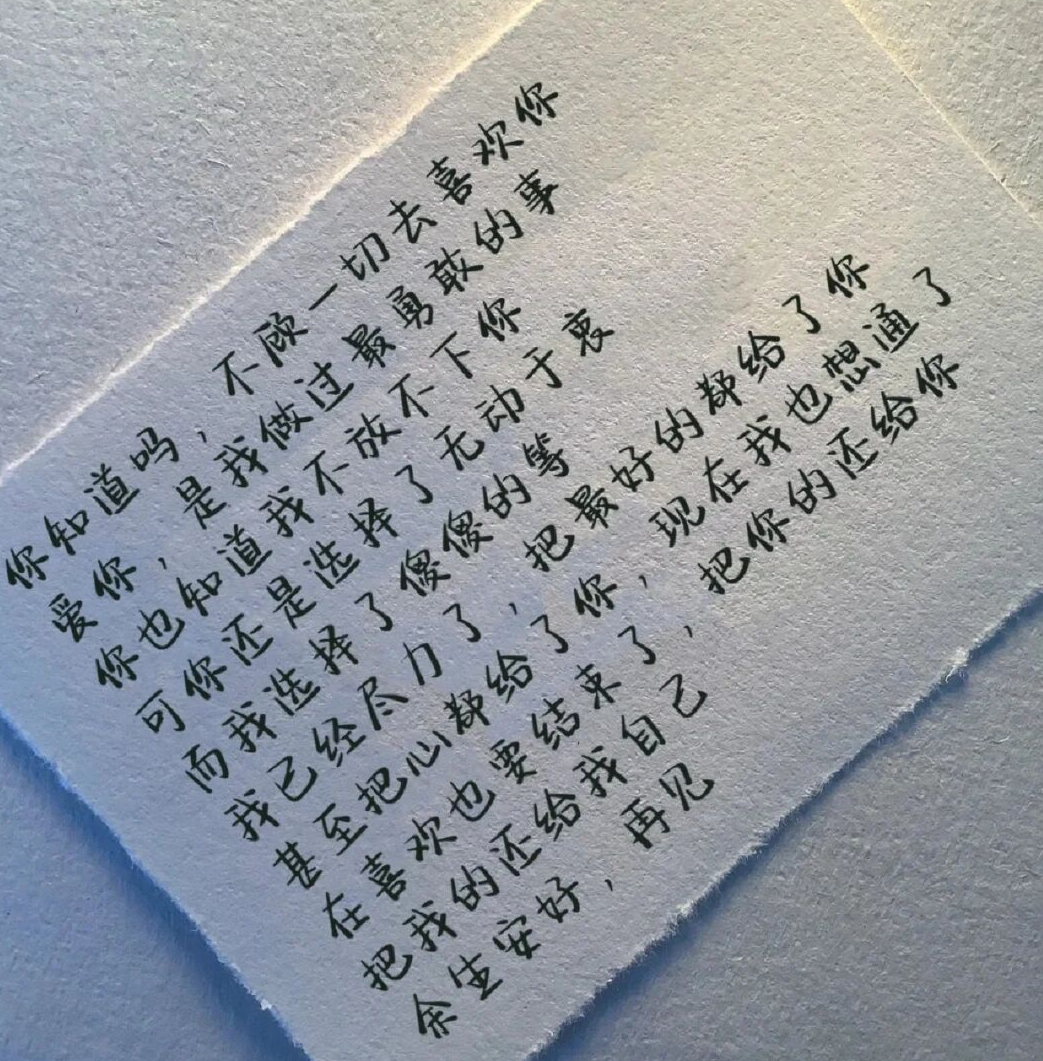 你知道吗，不顾一切去喜欢你
爱你，是我做过最勇敢的事
你也知道我不放不下你
可你还是选择了无动于衷
而我选择了傻傻的等
我已经尽力了，把最好的都给了你
甚至把心都给了你，现在我也想通了
在喜欢也要结束了，把你的还给你
把我的还给我自己
余生安好，再见